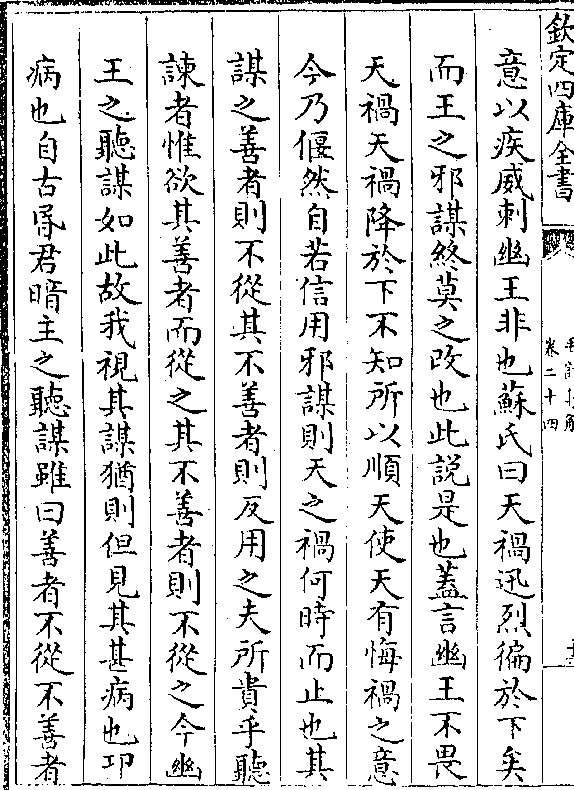 欽定四庫全書
卷二十四
意以疾威刺幽王非也蘇氏曰天禍迅烈徧於下矣
而王之邪謀終莫之改也此説是也蓋言幽王不畏
天禍天禍降於下不知所以順天使天有悔禍之意
今乃偃然自若信用邪謀則天之禍何時而止也其
謀之善者則不從其不善者則反用之夫所貴乎聽
諫者惟欲其善者而從之其不善者則不從之今幽
王之聽謀如此故我視其謀猶則但見其甚病也卭
病也自古昬君暗主之聽謀雖曰善者不從不善者